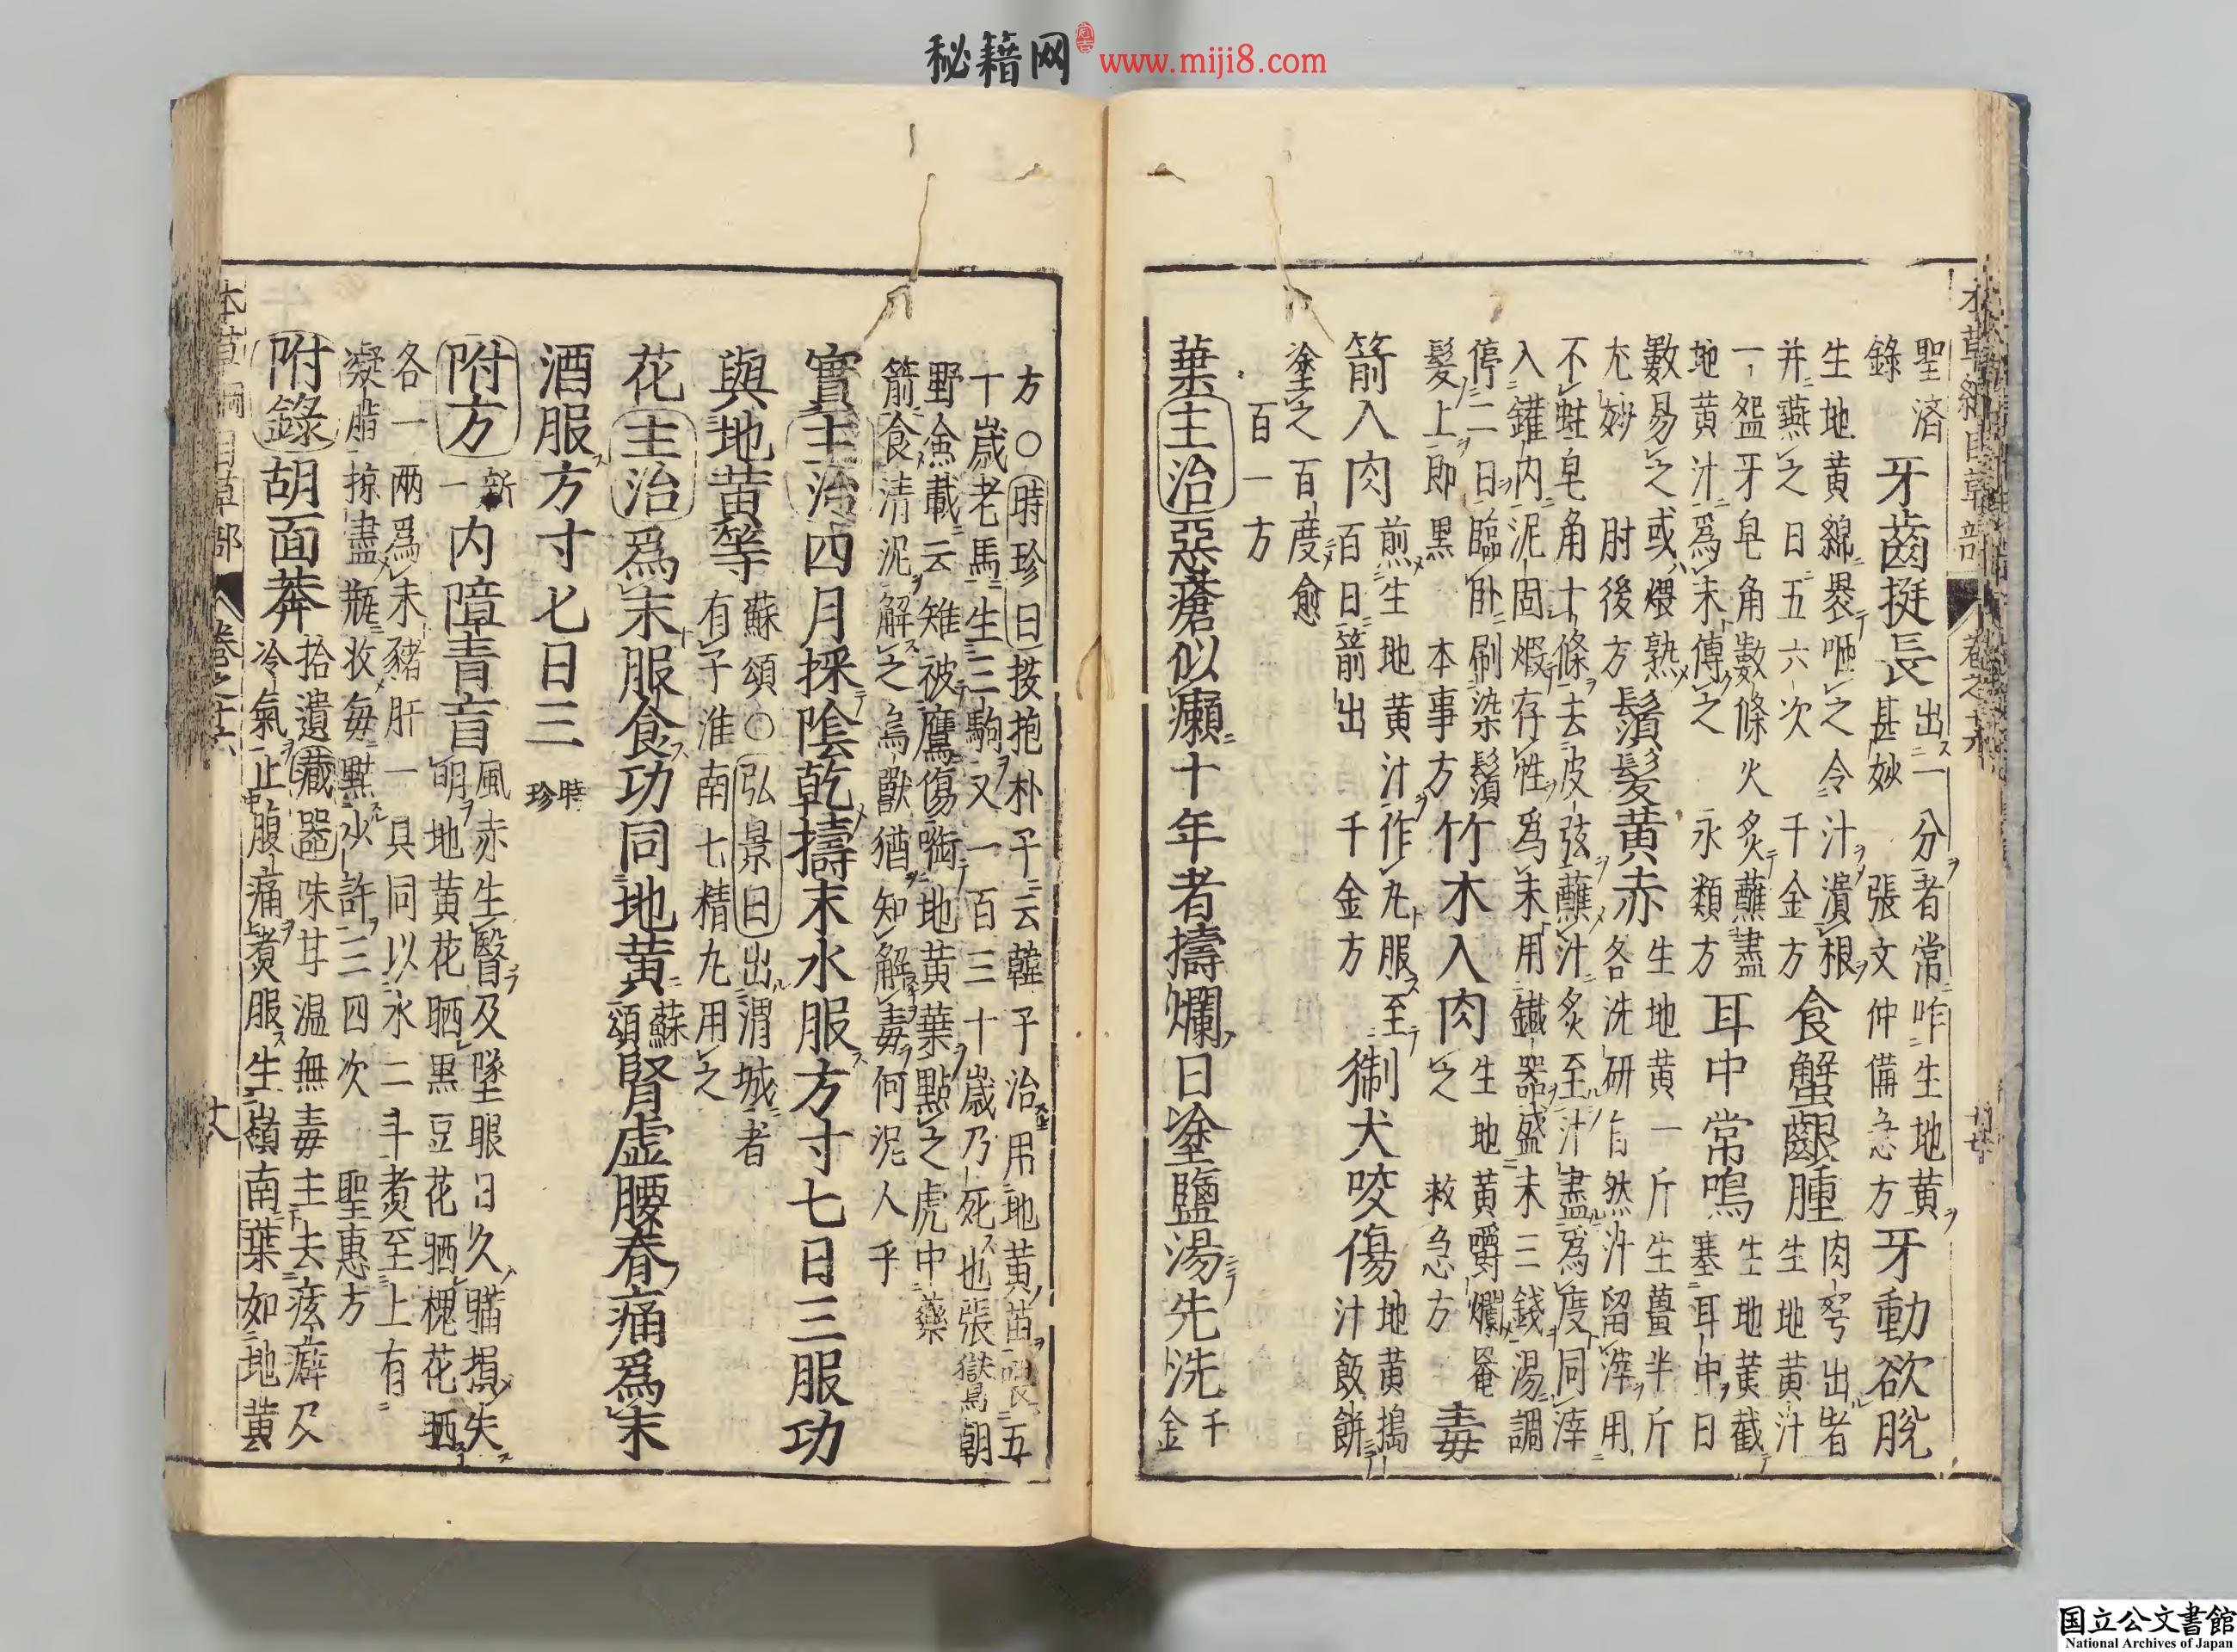 秘籍网 www.miji8.com
本草綱目草部 卷之十六
聖済 牙齒挺長 出二一分者常咋生地黄 牙動欲脫
錄 甚妙 張文仲備急方
生地黄綿褁咂之令汁漬根 食蟹齦腫 肉弩出者
并嚥之日五六次 千金方 生地黄汁
一盌牙皂角數條火炙蘸盡 耳中常鳴 生地黄截
地黄汁爲末傳之 永類方 塞耳中日
數易之或煨熟 鬚髮黄赤 生地黄一斤生薑半斤
尤妙 肘後方 各洗研自然汁留滓用
不蛀皂角十條去皮弦蘸汁炙至汁盡爲度同滓
入鑵内泥固煆存性爲末用鐵器盛末三錢湯調
停二日臨卧刷染鬚 竹木入肉 生地黄嚼爛罨 毒
髮上即黒 本事方 之 救急方
箭入肉 煎生地黄汁作丸服至 猘犬咬傷 地黄搗
百日箭出 千金方 汁飯餅
塗之百度愈
百一方
葉 主治 惡瘡似癩十年者擣爛日塗鹽湯先洗 千
金
方○時珍曰按抱朴子云韓子治用地黄苗喂五
十歳老馬生三駒又一百三十歳乃死也張鷟朝
野僉載云雉被鷹傷啣地黄葉點之虎中藥
箭食清泥解之鳥獸猶知解毒何况人乎
實 主治 四月採陰乾擣末水服方寸七日三服功
與地黄等 蘇頌○弘景曰出渭城者
有子淮南七精丸用之
花 主治 爲末服食功同地黄 蘇頌 腎虛腰脊痛爲末
酒服方寸七日三 時珍
附方 新一 内障青盲 風赤生瞖及墜眼日久瞞損失
明地黄花晒黒豆花晒槐花晒
各一兩爲末豬肝一具同以水二斗煑至上有
凝脂掠盡瓶收毎點少許三四次 聖惠方
附錄 胡面莽 拾遺藏器 味甘温無毒主去痃癖及
冷氣止腹痛煑服生嶺南葉如地黄
本草綱目草部 卷之十六
国立公文書館
National Archives of Japan